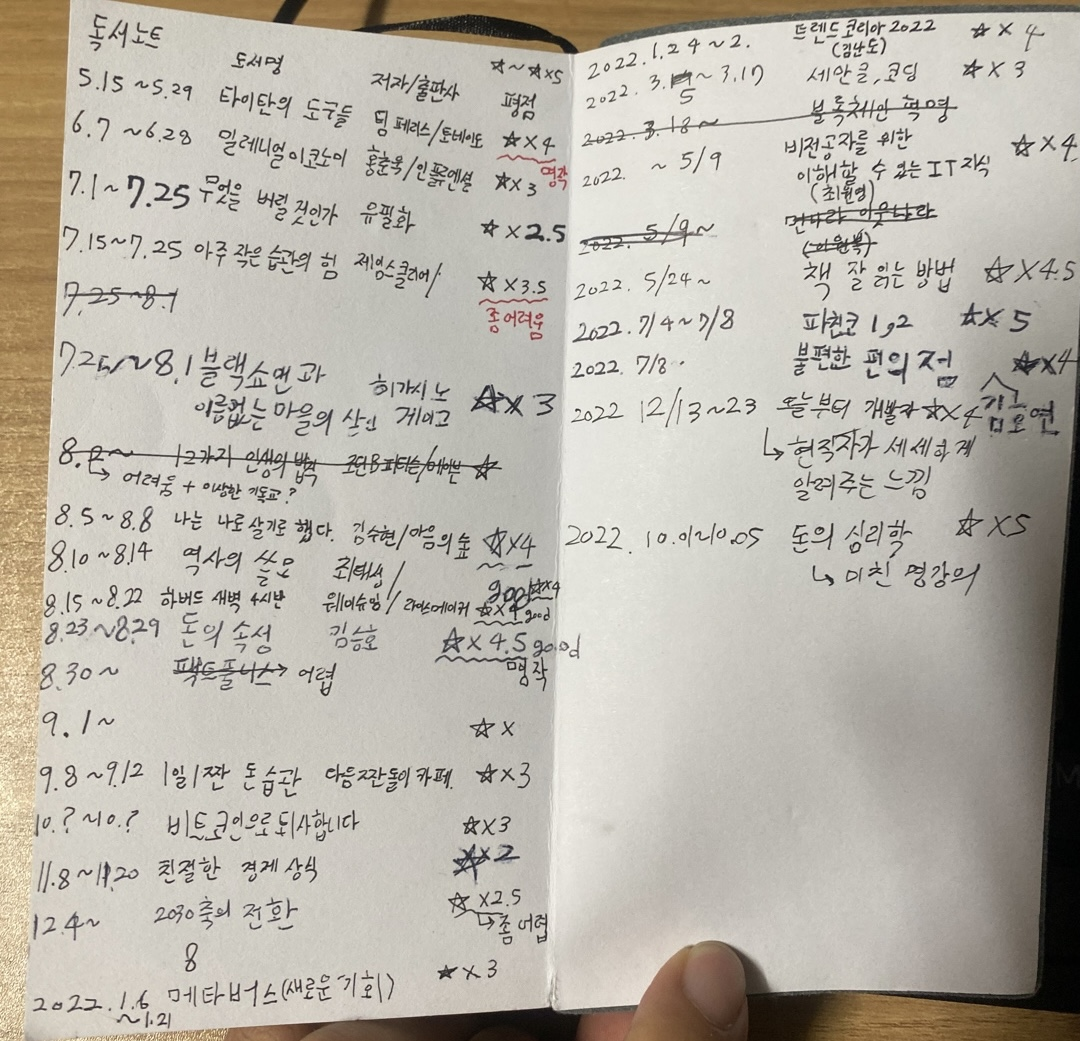 독서노트
도서명 저자/출판사 ☆~★x5
평점
5.15~5.29 타이탄의 도구들 팀 페리스/토네이도 ☆x4
명작
6.7~6.28 밀레니얼 이코노미 홍춘욱/인플루엔셜 ☆x3
7.1~7.25 무엇을 버릴 것인가 유필화 ☆x2.5
7.15~7.25 아주 작은 습관의 힘 제임스클리어/ ☆x3.5
좀 어려움
7.25~8.1
7.25~8.1 블랙쇼맨과
이름없는 마을의 살인 히가시노 게이고 ☆x3
8.2~ 12가지 인생의 법칙 조던B피터슨/메이븐 ☆
→ 어려움 + 이상한 기독교?
8.5~8.8 나는 나로 살기로 했다. 김수현/마음의숲 ☆x4
8.10~8.14 역사의 쓸모 최태성/ good ☆x4
8.15~8.22 하버드 새벽 4시반 웨이슈잉/라이스메이커 ☆x4 good
8.23~8.29 돈의 속성 김승호 ☆x4.5 good
명작
8.30~ 팩트풀니스→ 어렵
9.1~ ☆x
9.8~9.12 1일 1짠 돈 습관 다음짠돌이카페. ☆x3
10.?~10.? 비트코인으로 퇴사합니다 ☆x3
11.8~11.20 친절한 경제 상식 ☆x2
12.4~ 2030 축의 전환 ☆x2.5
→좀 어렵
8
2022.1.6 메타버스(새로운 기회) ★x3
~1.21
2022.1.24~2. 트렌드코리아 2022 ☆x4
(김난도)
2022. 3.15~3.17 세안클, 코딩 ☆x3
2022.3.18~ 블록체인 혁명
2022. ~5/9 비전공자를 위한 ☆x4
이해할 수 있는 IT지식
(최원영)
2022. 5/9~ 먼나라 이웃나라
(이원복)
2022. 5/24~ 책 잘 읽는 방법 ☆x4.5
2022. 7/4~7/8 파친코 1,2 ☆x5
2022. 7/8. 불편한 편의점 ☆x4
2022 12/13~23 오늘부터 개발자 ☆x4 김호연
↳현직자가 세세하게
알려주는 느낌
2022. 10.01~10.05 돈의 심리학 ☆x5
↳미친 명강의